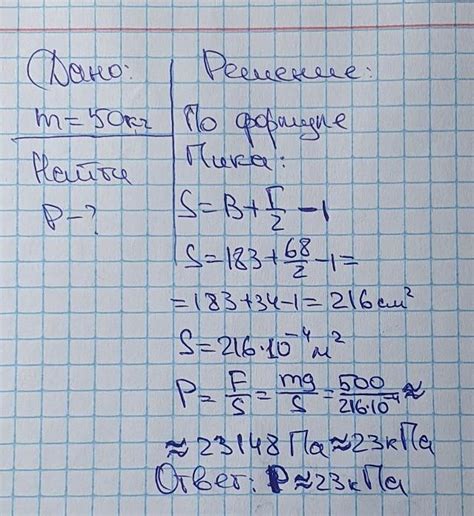 Дано:
m=50кг
Найти
P-?
Решение:
По формуле
Пика:
S=В+Г/2-1
S=183+68/2-1=
=183+34-1=216см²
S=216·10⁻⁴м²
P=F/S=mg/S=500/216·10⁻⁴≈
≈23148Па≈23кПа
Ответ: P≈23кПа